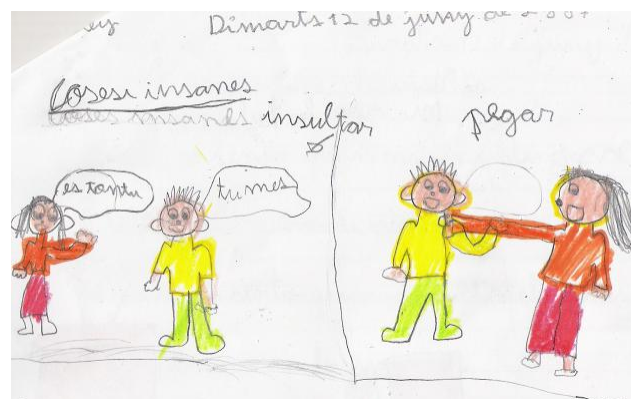 Dimarts 12 de juny de 2007
Coses insanes
coses insanes insultar
pegar
es tontu
tu mes